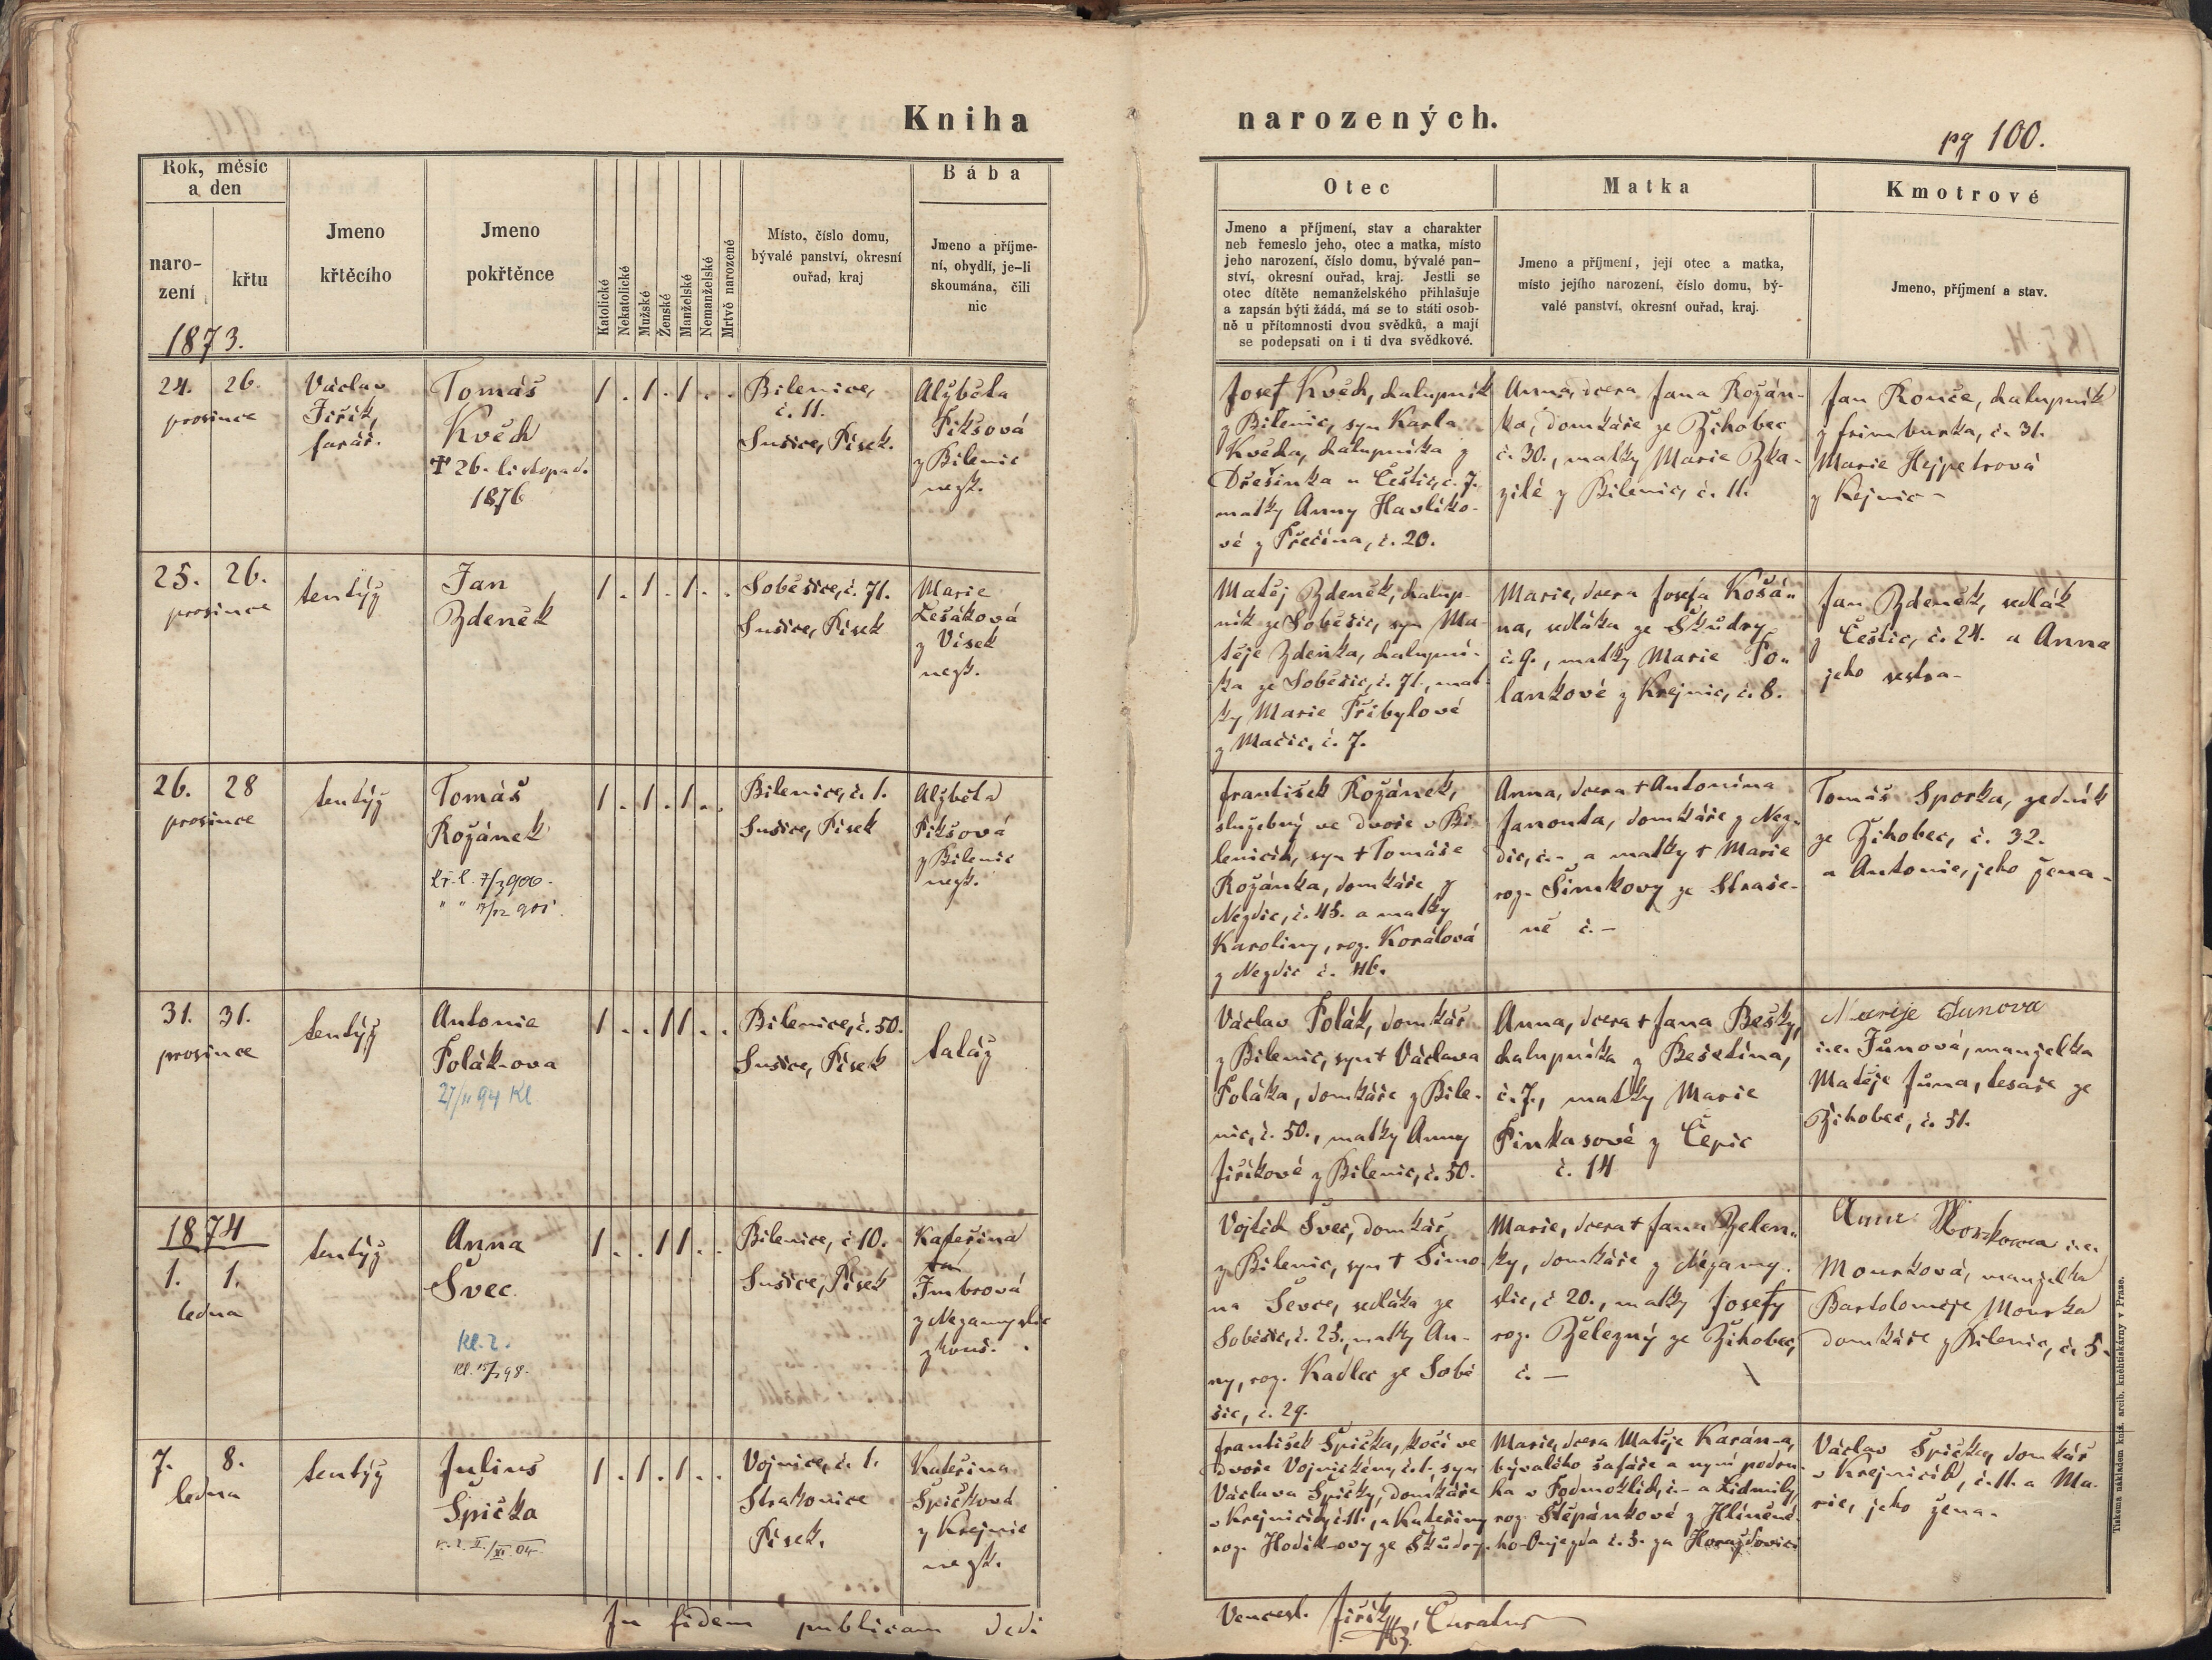 Kniha narozených.
pg 100.
Rok, měsíc
a den
naro-
zení
křtu
1873.
Jmeno
křtěcího
Jmeno
pokřtěnce
Katolické
Nekatolické
Mužské
Ženské
Manželské
Nemanželské
Mrtvě narozené
Místo, číslo domu,
bývalé panství, okresní
ouřad, kraj
Bába
Jmeno a příjme-
ní, obydlí, je-li
skoumána, čili
nic
Otec
Jmeno a příjmení, stav a charakter
neb řemeslo jeho, otec a matka, místo
jeho narození, číslo domu, bývalé pan-
ství, okresní ouřad, kraj. Jestli se
otec dítěte nemanželského přihlašuje
a zapsán býti žádá, má se to státi osob-
ně u přítomnosti dvou svědků, a mají
se podepsati on i ti dva svědkové.
Matka
Jmeno a příjmení, její otec a matka,
místo jejího narození, číslo domu, bý-
valé panství, okresní ouřad, kraj.
Kmotrové
Jmeno, příjmení a stav.
24. 26.
prosince
Václav
Jiřík,
farář.
Tomáš
Květ
† 26. listopad.
1876
1 . 1 . 1 . .
Bilenice,
č. 11.
Sušice, Písek.
Alžběta
Fiksová
z Bilenic
nezk.
Josef Květ, chalupník
z Bilenic, syn Karla
Květa, chalupníka z
Dřešínka u Čestic, č. 7.
matky Anny Havlíko-
vé z Přečína, č. 20.
Anna, dcera Jana Rozán-
ka, domkáře ze Žihobec
č. 30., matky Marie Zka-
zilé z Bilenic, č. 11.
Jan Rouče, chalupník
z frimburka, č. 31.
Marie Hejpetrová
z Kejnic -
25. 26.
prosince
tentýž
Jan
Zdeněk
1 . 1 . 1 . .
Soběšice, č. 71.
Sušice, Písek
Marie
Lešáková
z Vísek
nezk.
Matěj Zdeněk, chalup-
ník ze Soběšic, syn Ma-
těje Zdeňka, chalupní-
ka ze Soběšic, č. 71., mat-
ky Marie Přibylové
z Mačic, č. 7.
Marie, dcera Josefa Košá-
na, sedláka ze Škůdry
č. 9., matky Marie Po-
lankové z Krejnic, č. 8.
Jan Zdeněk, sedlák
z Čestic, č. 24. a Anna
jeho sestra -
26. 28
prosince
tentýž
Tomáš
Rozánek
kř. l. 7/3 900.
" " 7/12 901.
1 . 1 . 1 . .
Bilenice, č. 1.
Sušice, Písek
Alžběta
Fiksová
z Bilenic
nezk.
František Rozánek,
služebný ve dvoře v Bi-
lenicích, syn † Tomáše
Rozánka, domkáře z
Nezdic, č. 45. a matky
Karoliny, roz. Korálová
z Nezdic č. 46.
Anna, dcera † Antonína
Janouta, domkáře z Nez-
dic, č. - a matky † Marie
roz. Šimkovy ze Straše-
ně č. -
Tomáš Sporka, zedník
ze Žihobec, č. 32.
a Antonie, jeho žena -
31. 31.
prosince
tentýž
Antonie
Polák-ova
27/11 94 Kl
1 . . 1 1 . .
Bilenice, č. 50.
Sušice, Písek
tatáž
Václav Polák, domkář
z Bilenic, syn † Václava
Poláka, domkáře z Bile-
nic, č. 50., matky Anny
Jiříkové z Bilenic, č. 50.
Anna, dcera † Jana Bešky,
chalupníka z Bešetína,
č. 7., matky Marie
Pinkasové z Čepic
č. 14
Marije Junova
i.e. Jůnová, manželka
Matěje Jůna, tesaře ze
Žihobec, č. 51.
1874
1. 1.
ledna
tentýž
Anna
Švec
Kl. 2.
Kl. 15/2 98.
1 . . 1 1 . .
Bilenice, č. 10.
Sušice, Písek
Kateřina
Imbrová
z Nezamyslic
zkouš.
Vojtěch Švec, domkář,
z Bilenic, syn † Šimo
na Ševce, sedláka ze
Soběšic, č. 25., matky An-
ny, roz. Kadlec ze Sobě
šic, č. 29.
Marie, dcera † Jana Zelen-
ky, domkáře z Nezamy-
slic, č. 20., matky Josefy
roz. Železný ze Žihobec,
č. —
Anna Mourkowa i.e.
Mourková, manželka
Bartoloměje Mourka
domkáře z Bilenic, č. 5.
7. 8.
ledna
tentýž
Julius
Špička
1 . 1 . 1 . .
Vojnice, č. 1.
Strakonice
Písek.
Kateřina
Špičková
z Krejnic
nezk.
František Špička, kočí ve
dvoře Vojnickém, č. 1., syn
Václava Špičky, domkáře
v Krejnicích, č. 11., a Kateřiny
roz. Hodík-ovy ze Škůdry.
Marie, dcera Matěje Karán-a,
bývalého šafáře a nyní podru-
ha v Podmoklich, č. - a Lidmily,
roz. Štěpánkové z Hliněné-
ho-Oujezda č. 3. za Horažďovici
Václav Špička, domkář
v Krejnicích, č. 11. a Ma-
rie, jeho žena.
In fidem publicam dedi
Vencesl. Jiřík, Curatus
Tiskema nákladem kníž. arcib. kněhtiskárny v Praze.